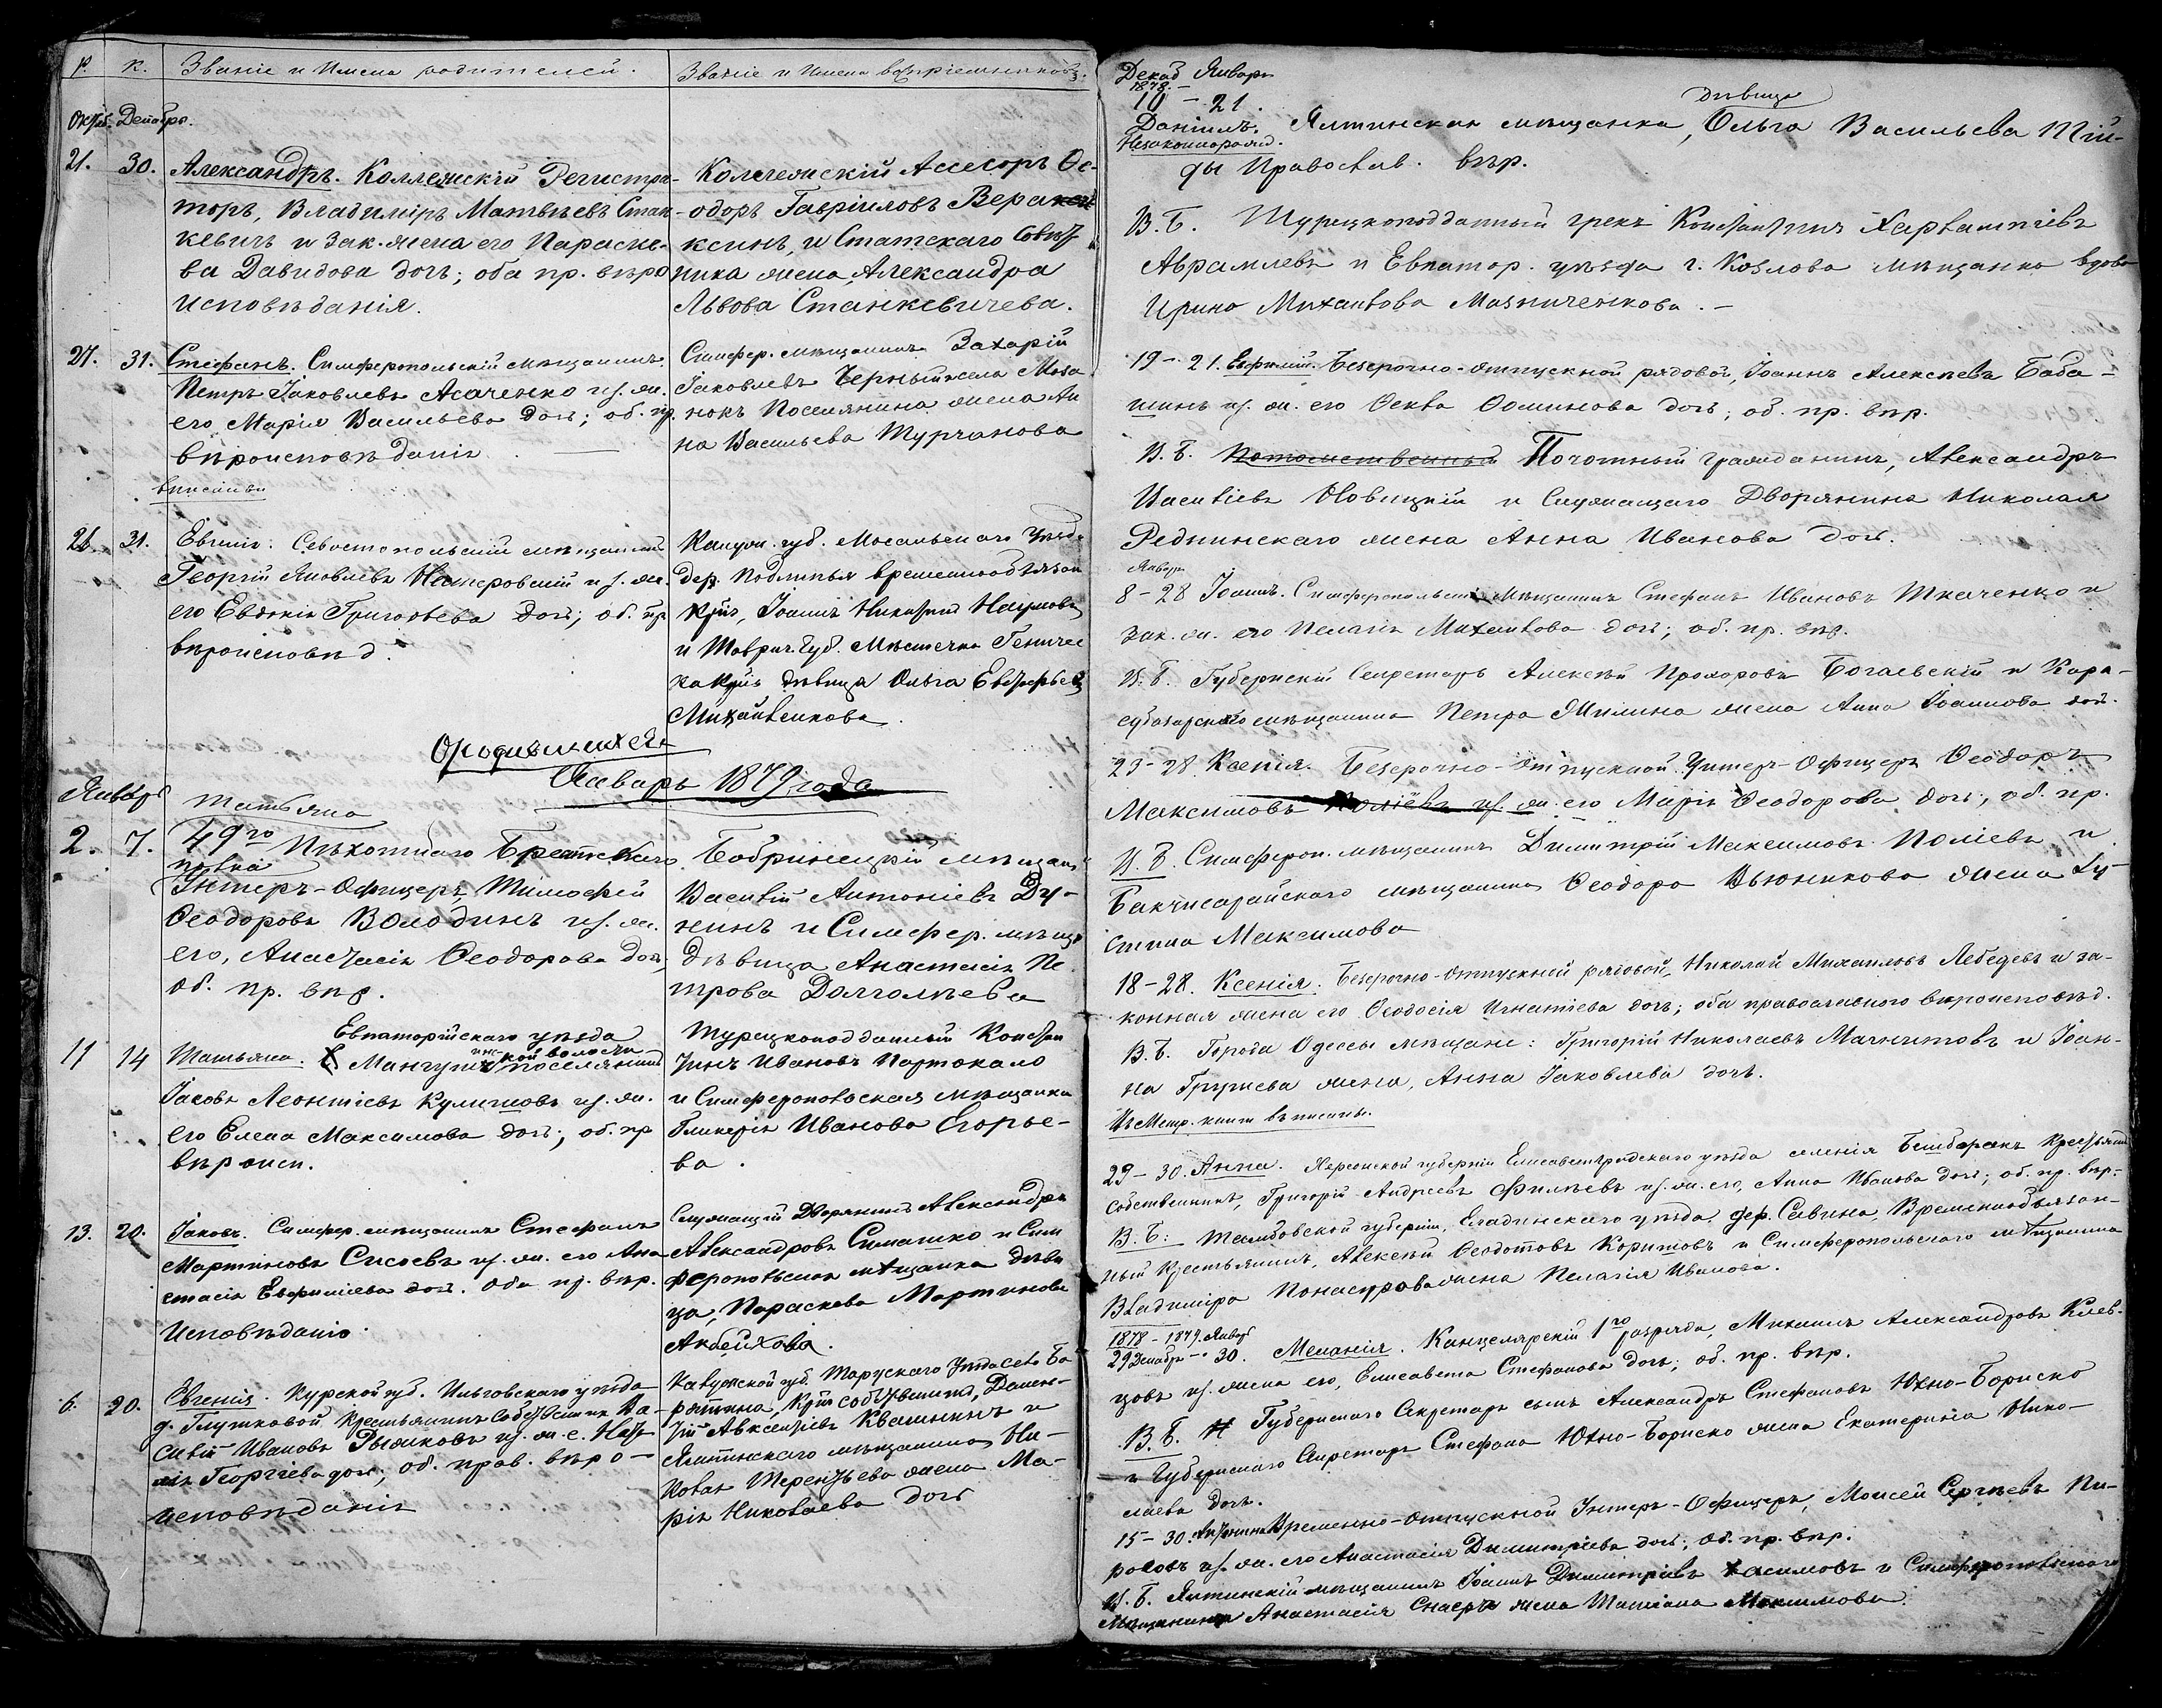 Р. К. Званіе и Имена родителей. Званіе и Имена воспріемниковъ.
Октяб. Декабрь.
21. 30. Александръ. Коллежскій Регистра-
торъ, Владиміръ Матвѣевъ Стан
кевичъ и зак. жена его Параске-
ва Давидова дочь; оба пр. вѣро
исповѣданія.
Коллежскій Ассесоръ Ѳе-
одоръ Гавріиловъ
и Статскаго Совѣт
ника жена, Александра
Львова Станкевичева.
27. 31. Стефанъ. Симферопольскій мѣщанинъ
Петръ Іаковлевъ Асаченко и з. ж.
его Марія Васильева дочь; об. пр.
вѣроисповѣданія
вписаны
Симфер. мѣщанинъ Захарій
Іаковлевъ Черный и села Маза
нокъ Поселянина жена Ан
на Васильева Турчанова
26. 31. Евгенія. Севастопольскій мѣщанинъ
Георгій Яковлевъ и з. жен.
его Евдокія Григорьева дочь; об. пр.
вѣроисповѣд.
Калуж. губ. Мосальскаго Уѣзда
дер. Подлипья временнообязан
кр., Іоаннъ Никитинъ Наумовъ
и Таврич. Губ. Мѣстечка Геничес
ка дѣвица Ольга
Михайленкова.
О родившихся
Январь 1879 года
Январь
Татьяна
2. 7. 49го Пѣхотнаго Брестскаго
полка
Унтеръ-Офицеръ, Тимофей
Ѳеодоровъ Володинъ и з. ж.
его, Анастасія Ѳеодорова дочь,
об. пр. вѣр.
Бобринецкій мѣщан.
Василій Антоніевъ Ду-
нинъ и Симфер. мѣщ.
дѣвица Анастасія Пе
трова Долголѣева
Евпаторійскаго уѣзда
11 14 Татьяна. Мангушской волости поселянинъ
Іаковъ Леонтіевъ Кулишовъ и з. ж.
его Елена Максимова дочь; об. пр
вѣроисп.
Турецкоподданный Констан
тинъ Ивановъ Портокало
и Симферопольская мѣщанка
Гликерія Иванова Егорье-
ва.
13. 20. Іаковъ. Симфер. мѣщанинъ Стефанъ
Мартиновъ Сисоевъ и з. ж. его Ана
стасія Евфиміева дочь. Оба пр. вѣр.
исповѣданія.
Служащій Дворянинъ Александръ
Александровъ Симашко и Сим
феропольская мѣщанка дѣви
ца, Параскева Мартинова
6. 20. Евгенія. Курской губ. Льговскаго уѣзда
д. Глушковой Крестьянинъ Собственникъ Ва-
силій Ивановъ Рыжковъ и з. ж. е. Ната
лія Георгіева дочь; об. прав. вѣро-
исповѣданія
Калужской губ. Тарускаго Уѣзда села Ба
рятина, Кр. собственникъ, Димен-
тій Авксентіевъ Квашнинъ и
Ялтинскаго мѣщанина Ни-
колая Терентьева жена Ма-
рія Николаева дочь
Декаб Январь
1878. -
10 - 21.
Даніилъ. Ялтинская мѣщанка, дѣвица Ольга Васильева
Незаконнорожд.
Православ. вѣр.
В.Б. Турецкоподданный грекъ Константинъ Харлампіевъ
Аврамлевъ и Евпатор. уѣзда г. Козлова мѣщанка вдова
Ирина Михаилова Мазниченкова. -
19 - 21. Евфимій. Безсрочно-отпускной рядовой, Іоаннъ Алексѣевъ Баба-
шинъ и з. ж. его Ѳекла Ѳомитова дочь; об. пр. вѣр.
В.Б. Потомственный Почотный гражданинъ, Александръ
Васильевъ Новицкій и Служащаго Дворянина Николая
Реднинскаго жена Анна Иванова дочь.
Январь
8 - 28 Іоаннъ. Симферопольскій мѣщанинъ Стефанъ Ивановъ Ткаченко и
зак. ж. его Пелагія Михаилова дочь; об. пр. вѣр.
В.Б. Губернскій Секретарь Алексѣй Прохоровъ Богаевскій и Кара-
субазарскаго мѣщанина Петра Жилина жена Анна Іоаннова доч.
23 - 28 Ксенія. Безсрочно-отпускной Унтеръ-Офицеръ Ѳеодоръ
Максимовъ Поліевъ и з. ж. его Марія Ѳеодорова дочь; об. пр.
В.Б. Симфероп. мѣщанинъ Димитрій Максимовъ Поліевъ и
Бакчисарайскаго мѣщанина Ѳеодора Вьюникова жена Іу-
стина Максимова
18 - 28. Ксенія. Безсрочно-отпускной рядовой, Николай Михаиловъ Лебедевъ и за-
конная жена его Ѳеодосія Игнатіева дочь; оба православнаго вѣроисповѣд.
В.Б. Города Одессы мѣщане: Григорій Николаевъ Магнитовъ и Іоан-
на Грушева жена, Анна Іаковлева дочь.
Въ Метр. книги вписаны.
29 - 30. Анна. Херсонской губерніи Елисаветградскаго уѣзда селенія Бешбаракъ Крестьянинъ
собственникъ, Григорій Андреевъ Филѣевъ и з. ж. его, Анна Иванова дочь; об. пр. вѣр.
В.Б: Тамбовской губерніи, Елатинскаго уѣзда дер. Савина, Временнообязан-
ный Крестьянинъ, Алексѣй Ѳеодотовъ Коритовъ и Симферопольскаго мѣщанина
Владиміра Понасурова жена Пелагія Иванова.
1878 - 1879. Январь
29 Декабр - 30. Меланія. Канцелярскій 1го разряда, Михаилъ Александровъ Клев-
цовъ и з. жена его, Елисавета Стефанова дочь; об. пр. вѣр.
В.Б. Губернскаго Секретаря сынъ Александръ Стефановъ Юхно-Бориско
и Губернскаго Секретаря Стефана Юхно-Бориско жена Екатерина Нико-
лаева дочь.
15 - 30. Антонина Временно-отпускной Унтеръ-Офицеръ, Моисей Сергѣевъ Пи-
роговъ и з. ж. его Анастасія Димитріева дочь; об. пр. вѣр.
В.Б. Ялтинскій мѣщанинъ Іоаннъ Димитріевъ и Симферопольскаго
мѣщанина жена Татіана Максимова.